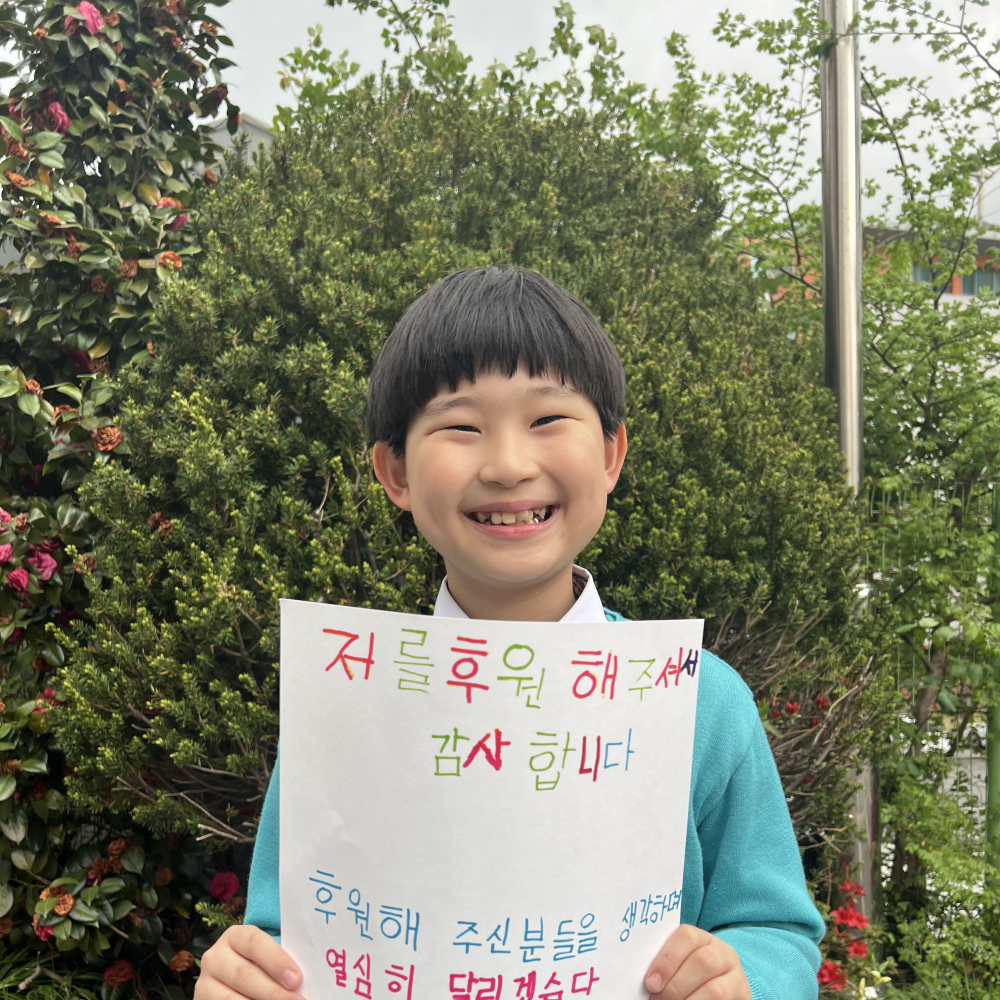 저를 후원 해 주셔서
감사 합니다
후원해 주신분들을 생각하며
열심히 달리겠습다